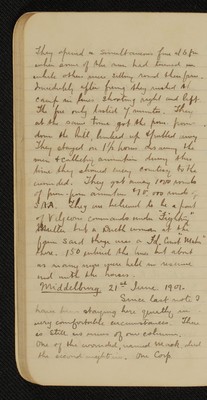 They opened a simultaneous fire at 5 pm
when some of the men had turned in
while others were sitting round their fires.
Immediately after firing they rushed the
camp in lines shooting right and left.
The fire only lasted 7 minutes. They
at the same time got the pom poms
down the hill, hooked up & pulled away.
They stayed on 1½ hours disarming the
men & collecting ammunition during this
time they showed every courtesy to the
wounded. They got away 1000 rounds
of pom-pom ammunition & 90 000 rounds
S.A.A. They are believed to be a part
of Viljoen's commando under "Fighting"
Muller but a Dutch woman at the
farm said there was a
there. 150 entered the but about
as many more were held in reserve
and with the horses.
Middelburg, 21st June 1901.
Since last note I
have been staying here quietly in
very comfortable circumstances. There
is still no news of our column.
One of the wounded, named died
the second night in. Our Corp